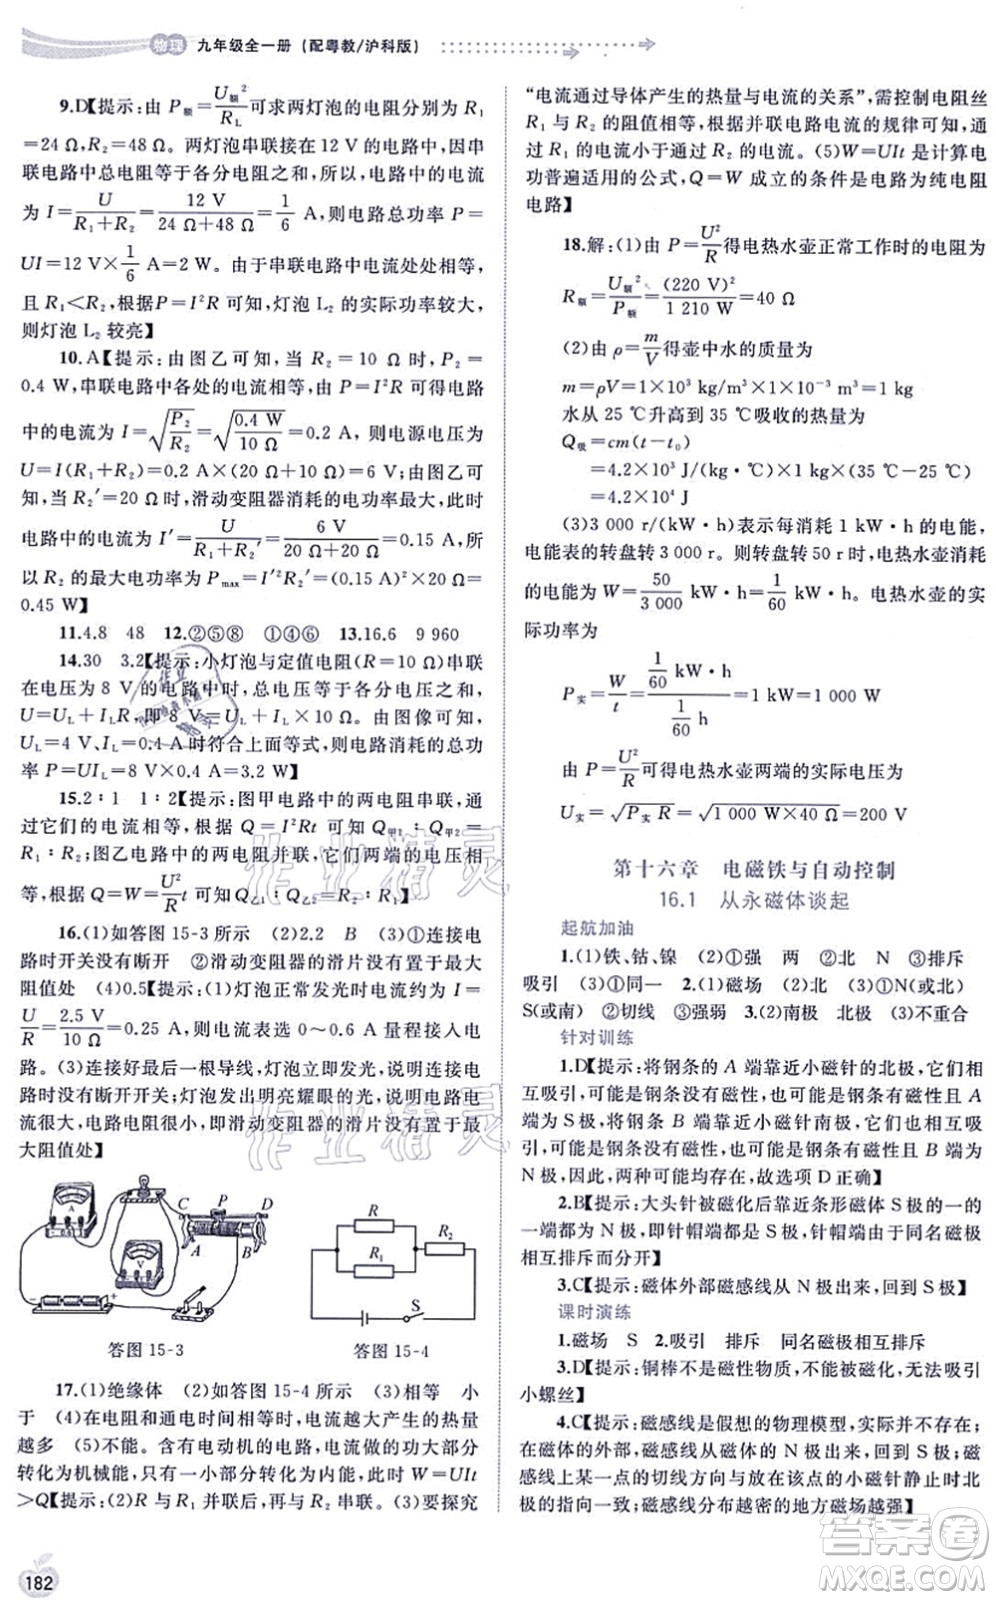 物理 九年级全一册(配粤教/沪科版)
9.D【提示:由 P额=U额²/R_L 可求两灯泡的电阻分别为 R₁
=24 Ω,R₂=48 Ω。两灯泡串联接在 12 V 的电路中,因串
联电路中总电阻等于各分电阻之和,所以,电路中的电流
为 I=U/(R₁+R₂)=12 V/(24 Ω+48 Ω)=1/6 A,则电路总功率 P=
UI=12 V×1/6 A=2 W;由于串联电路中电流处处相等,
且 R₁<R₂,根据P=I²R可知,灯泡 L₂ 的实际功率较大,
则灯泡 L₂ 较亮】
10.A【提示:由图乙可知,当 R₂=10 Ω时,P₂=
0.4 W,串联电路中各处的电流相等,由 P=I²R 可得电路
中的电流为 I=√(P₂/R₂)=√(0.4 W/10 Ω)=0.2 A,则电源电压为
U=I(R₁+R₂)=0.2 A×(20 Ω+10 Ω)=6 V;由图乙可
知,当 R₂′=20 Ω时,滑动变阻器消耗的电功率最大,此时
电路中的电流为 I′=U/(R₁+R₂′)=6 V/(20 Ω+20 Ω)=0.15 A,所
以 R₂ 的最大电功率为 Pmax=I′²R₂′=(0.15 A)²×20 Ω=
0.45 W】
11.4.8 48 12.②⑤⑧ ①④⑥ 13.16.6 9 960
14.30 3.2【提示:小灯泡与定值电阻(R=10 Ω)串联
在电压为 8 V 的电路中时,总电压等于各部分电压之和,
U=U_L+I_LR,即 8 V=U_L+I_L×10 Ω。由图像可知,
U_L=4 V、I_L=0.4 A时符合上面等式,则电路消耗的总功
率 P=UI_L=8 V×0.4 A=3.2 W】
15.2∶1 1∶2【提示:图甲电路中的两电阻串联,通
过它们的电流相等,根据 Q=I²Rt 可知 Q甲1∶Q甲2=
R₁∶R₂;图乙电路中的两电阻并联,它们两端的电压相
等,根据Q=W=U²/R t可知Q乙1∶Q乙2=R₂∶R₁】
16.(1)如答图 15-3 所示 (2)2.2 B (3)①连接电
路时开关没有断开 ②滑动变阻器的滑片没有置于最大
阻值处 (4)0.5【提示:(1)灯泡正常发光时电流约为 I=
U/R=2.5 V/10 Ω=0.25 A,则电流表选 0～0.6 A 量程接入电
路。(3)连接好最后一根导线,灯泡立即发光,说明连接电
路时没有断开开关;灯泡发出明亮耀眼的光,说明电路电
流很大,电路中电阻很小,即滑动变阻器的滑片没有置于最
大阻值处】
A
V
C P D
A B
答图 15-3
R
R₁
R₂
S
答图 15-4
17.(1)绝缘体 (2)如答图 15-4 所示 (3)相等 小
于 (4)在电阻和通电时间相同时,电流越大产生的热量
越多 (5)不能。含有电动机的电路,电流做的功大部分
转化为机械能,只有一小部分转化为内能,此时 W=UIt
>Q【提示:(2)R 与 R₁ 并联后,再与 R₂ 串联。(3)要探究
“电流通过导体产生的热量与电流的关系”,需控制电阻丝
R₁ 与 R₂ 的阻值相等,根据并联电路电流的规律可知,通
过 R₁ 的电流小于通过 R₂ 的电流。(5)W=UIt 是计算电
功普遍适用的公式,Q=W 成立的条件是电路为纯电阻
电路】
18.解:(1)由 P=U²/R得电热水壶正常工作时的电阻为
R额=U额²/P额=(220 V)²/1 210 W=40 Ω
(2)由 ρ=m/V得壶中水的质量为
m=ρV=1×10³ kg/m³×1×10⁻³ m³=1 kg
水从 25 ℃升高到 35 ℃吸收的热量为
Q吸=cm(t-t₀)
=4.2×10³ J/(kg·℃)×1 kg×(35 ℃-25 ℃)
=4.2×10⁴ J
(3)3 000 r/(kW·h)表示每消耗 1 kW·h 的电能,
电能表的转盘转 3 000 r。则转盘转 50 r时,电热水壶消耗
的电能为 W=50/3 000 kW·h=1/60 kW·h。电热水壶的实
际功率为
P实=W/t=(1/60 kW·h)/(1/60 h)=1 kW=1 000 W
由 P=U²/R可得电热水壶两端的实际电压为
U实=√(P实R)=√(1 000 W×40 Ω)=200 V
第十六章 电磁铁与自动控制
16.1 从永磁体谈起
起航加油
1.(1)铁、钴、镍 (2)①强 两 ②北 N ③排斥
吸引 (3)①同一 2.(1)磁场 (2)北 (3)①N(或北)
S(或南) ②切线 ③强弱 3.(2)南极 北极 (3)不重合
针对训练
1.D【提示:将钢条的 A 端靠近小磁针的北极,它们相
互吸引,可能是钢条没有磁性,也可能是钢条有磁性且 A
端是 S 极;将钢条 B 端靠近小磁针南极,它们相互吸引,可
能是钢条没有磁性,也可能是钢条有磁性且 B 端是
N 极,因此,两种可能均存在,故选项 D 正确】
2.B【提示:大头针被磁化后靠近条形磁体 S 极的一
端都为 N 极,即针帽端都是 S 极,针帽端由于同名磁极
相互排斥而分开】
3.C【提示:磁体外部磁感线从 N 极出来,回到 S 极】
课时演练
1.磁场 S 2.吸引 排斥 同名磁极相互排斥
3.D【提示:铜棒不是磁性物质,不能被磁化,无法吸引
小螺丝】
4.C【提示:磁感线是假想的物理模型,实际不存在;
在磁体的外部,磁感线从磁体的 N 极出来,回到 S 极;磁
感线上某一点的切线方向与放在该点的小磁针静止时北
极的指向一致;磁感线分布越密的地方磁场越强】
182
作业精灵
作业精灵
答案卷
MXQE.COM